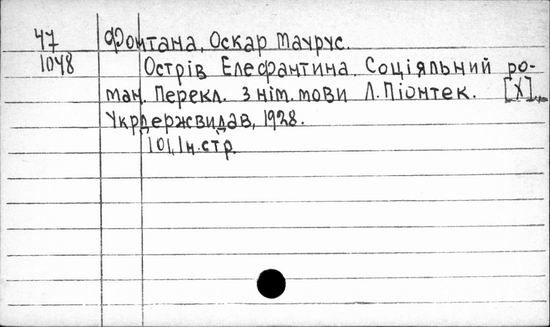 47 Фонтана, Оскар Маурус.
1048 Острів Елефантина. Соціяльний ро-
ман. Перекл. з нім. мови Л. Піонтек. [Х].,
Укрдержвидав, 1928.
101, 1 н. стр.